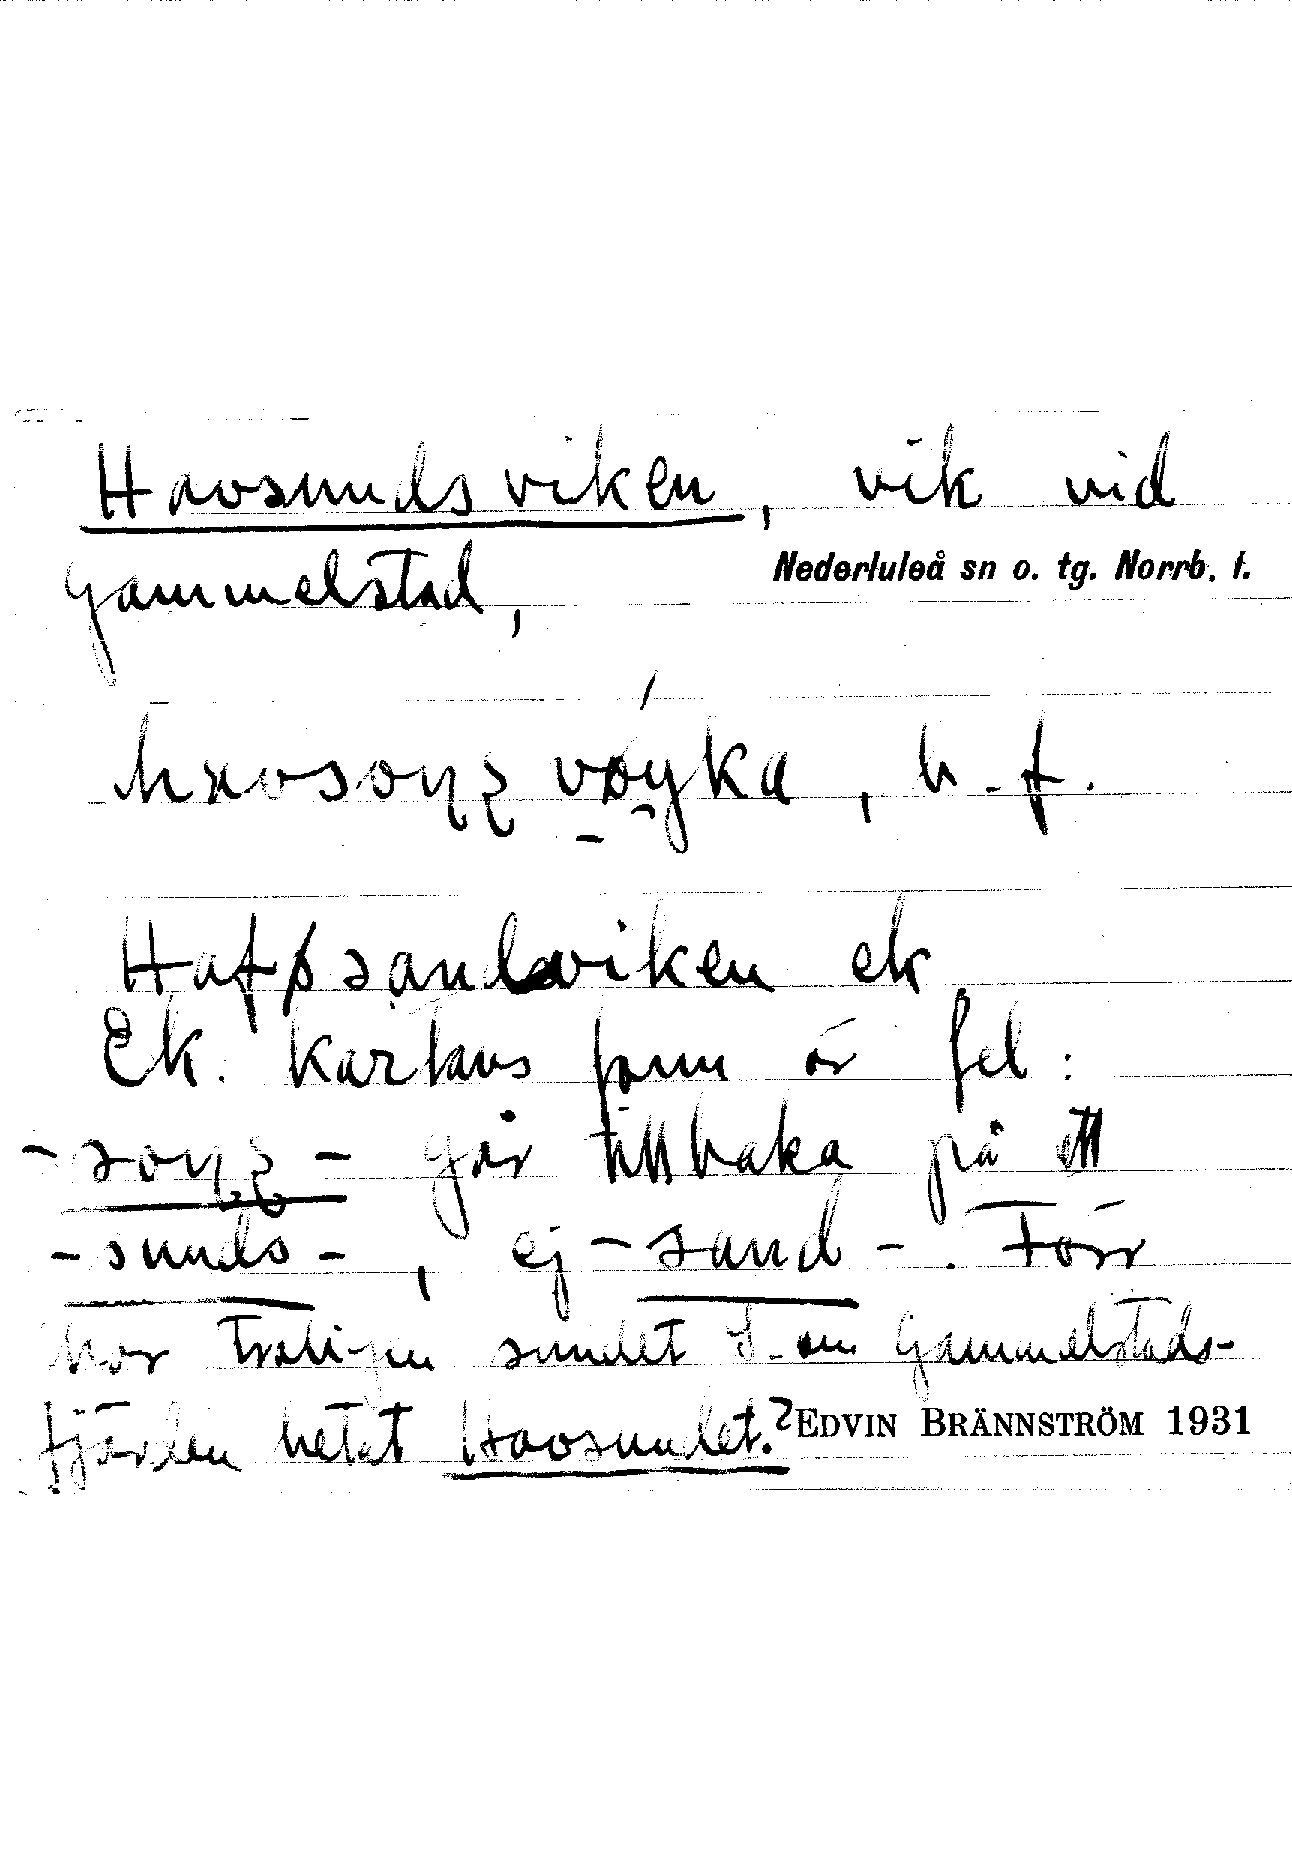 Havsundsviken, vik vid
Gammelstad,
Nederluleå sn o. tg. Norrb. l.
, b. f.
Hafsandviken ek
Ek. kartans form är fel:
går tillbaka på ett
-sunds-, ej -sand-. Förr
har troligen sundet S. om Gammelstads-
fjärden hetat Havsundet.?
EDVIN BRÄNNSTRÖM 1931